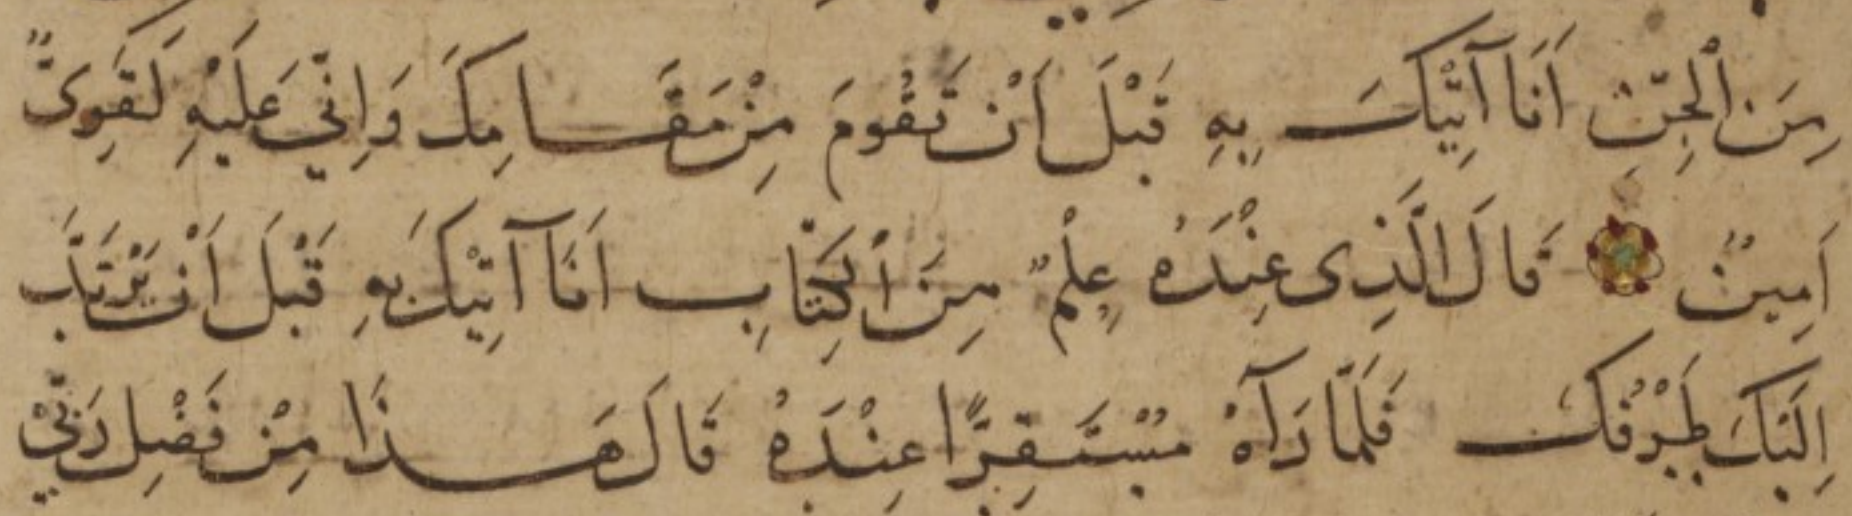 مِنَ الْجِنِّ اَنَا آتِيْكَ بِهِ قَبْلَ اَنْ تَقُومَ مِنْ مَقَامِكَ وَاِنّي عَلَيْهِ لَقَوِىٌّ
اَمِينٌ قَالَ الَّذِى عِنْدَهُ عِلْمٌ مِنَ الْكِتَابِ اَنَا آتِيْكَ بِهِ قَبْلَ اَنْ يَرْتَدَّ
اِلَيْكَ طَرْفُكَ فَلَمَّا رَآهُ مُسْتَقِرًّا عِنْدَهُ قَالَ هَذَا مِنْ فَضْلِ رَبّيْ